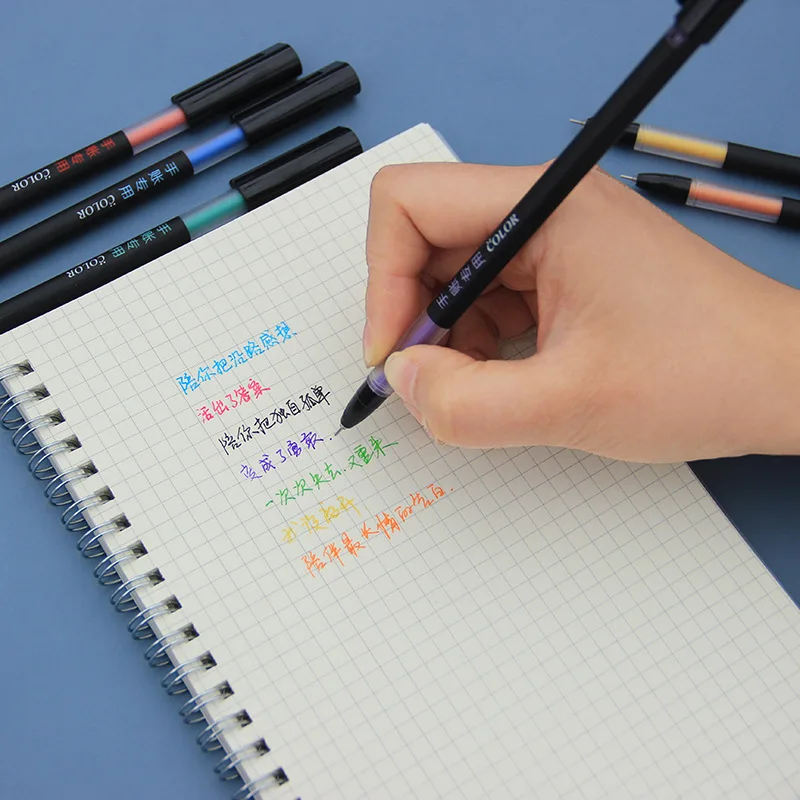 手账专用 COLOR
手账专用 COLOR
手账专用 COLOR
手账专用 COLOR
陪你把沿路感想
活出了答案
陪你把独自孤单
变成了勇敢.
一次次失去.又重来
我没离开
陪伴最长情的告白.